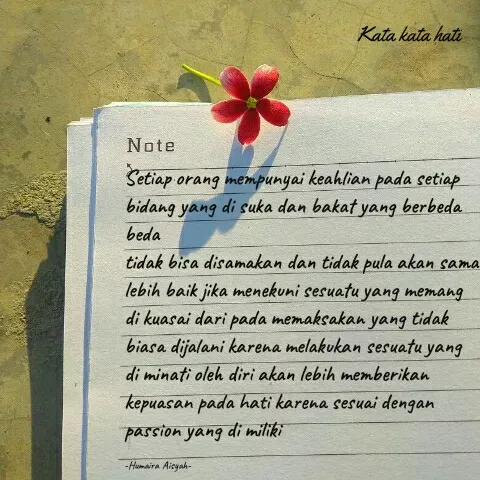 Kata kata hati
Note
Setiap orang mempunyai keahlian pada setiap
bidang yang di suka dan bakat yang berbeda
beda
tidak bisa disamakan dan tidak pula akan sama
lebih baik jika menekuni sesuatu yang memang
di kuasai dari pada memaksakan yang tidak
biasa dijalani karena melakukan sesuatu yang
di minati oleh diri akan lebih memberikan
kepuasan pada hati karena sesuai dengan
passion yang di miliki
-Humaira Aisyah-